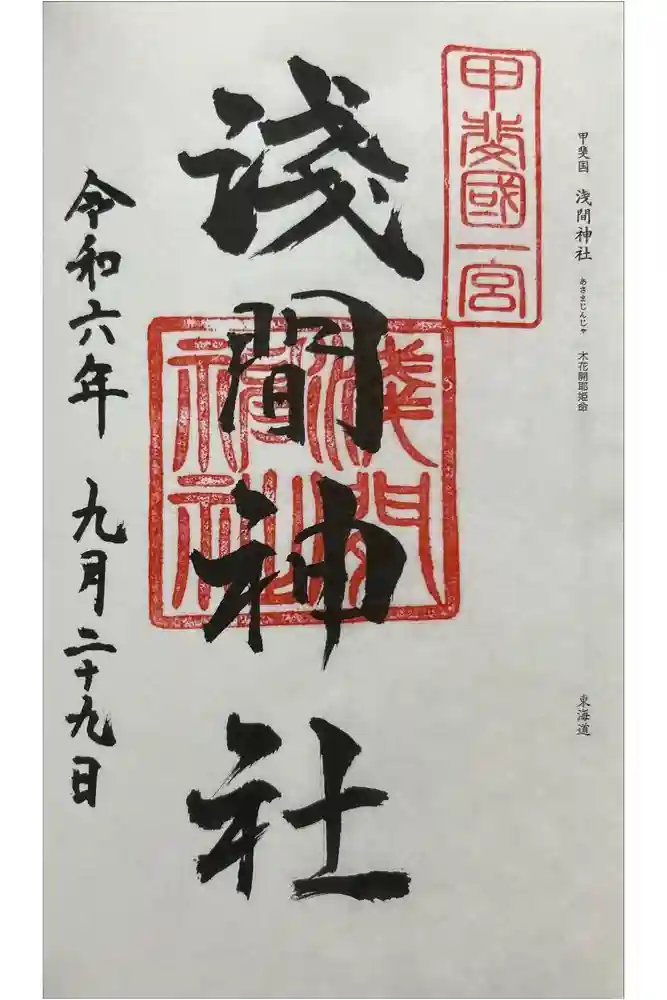 甲斐国 浅間神社 あさまじんじゃ 木花開耶姫命
東海道
甲斐國一宮
淺間神社
淺間
神社
令和六年 九月二十九日